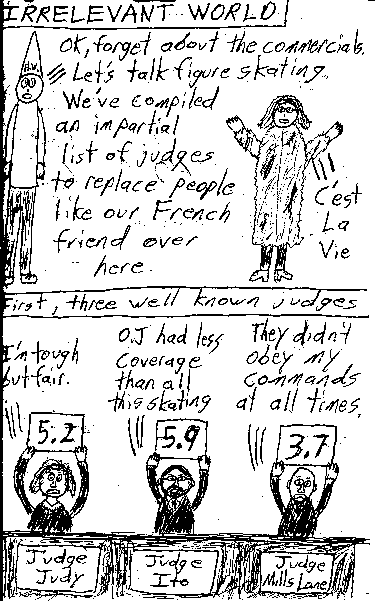 IRRELEVANT WORLD
H.V.
OK, forget about the commercials.
Let's talk figure skating.
We've compiled
an impartial
list of judges
to replace people
like our French
friend over
here.
C'est
La
Vie
First, three well known judges
I'm tough
but fair.
O.J had less
coverage
than all
this skating
They didn't
obey my
commands
at all times.
5.2
5.9
3.7
Judge
Judy
Judge
Ito
Judge
Mills Lane